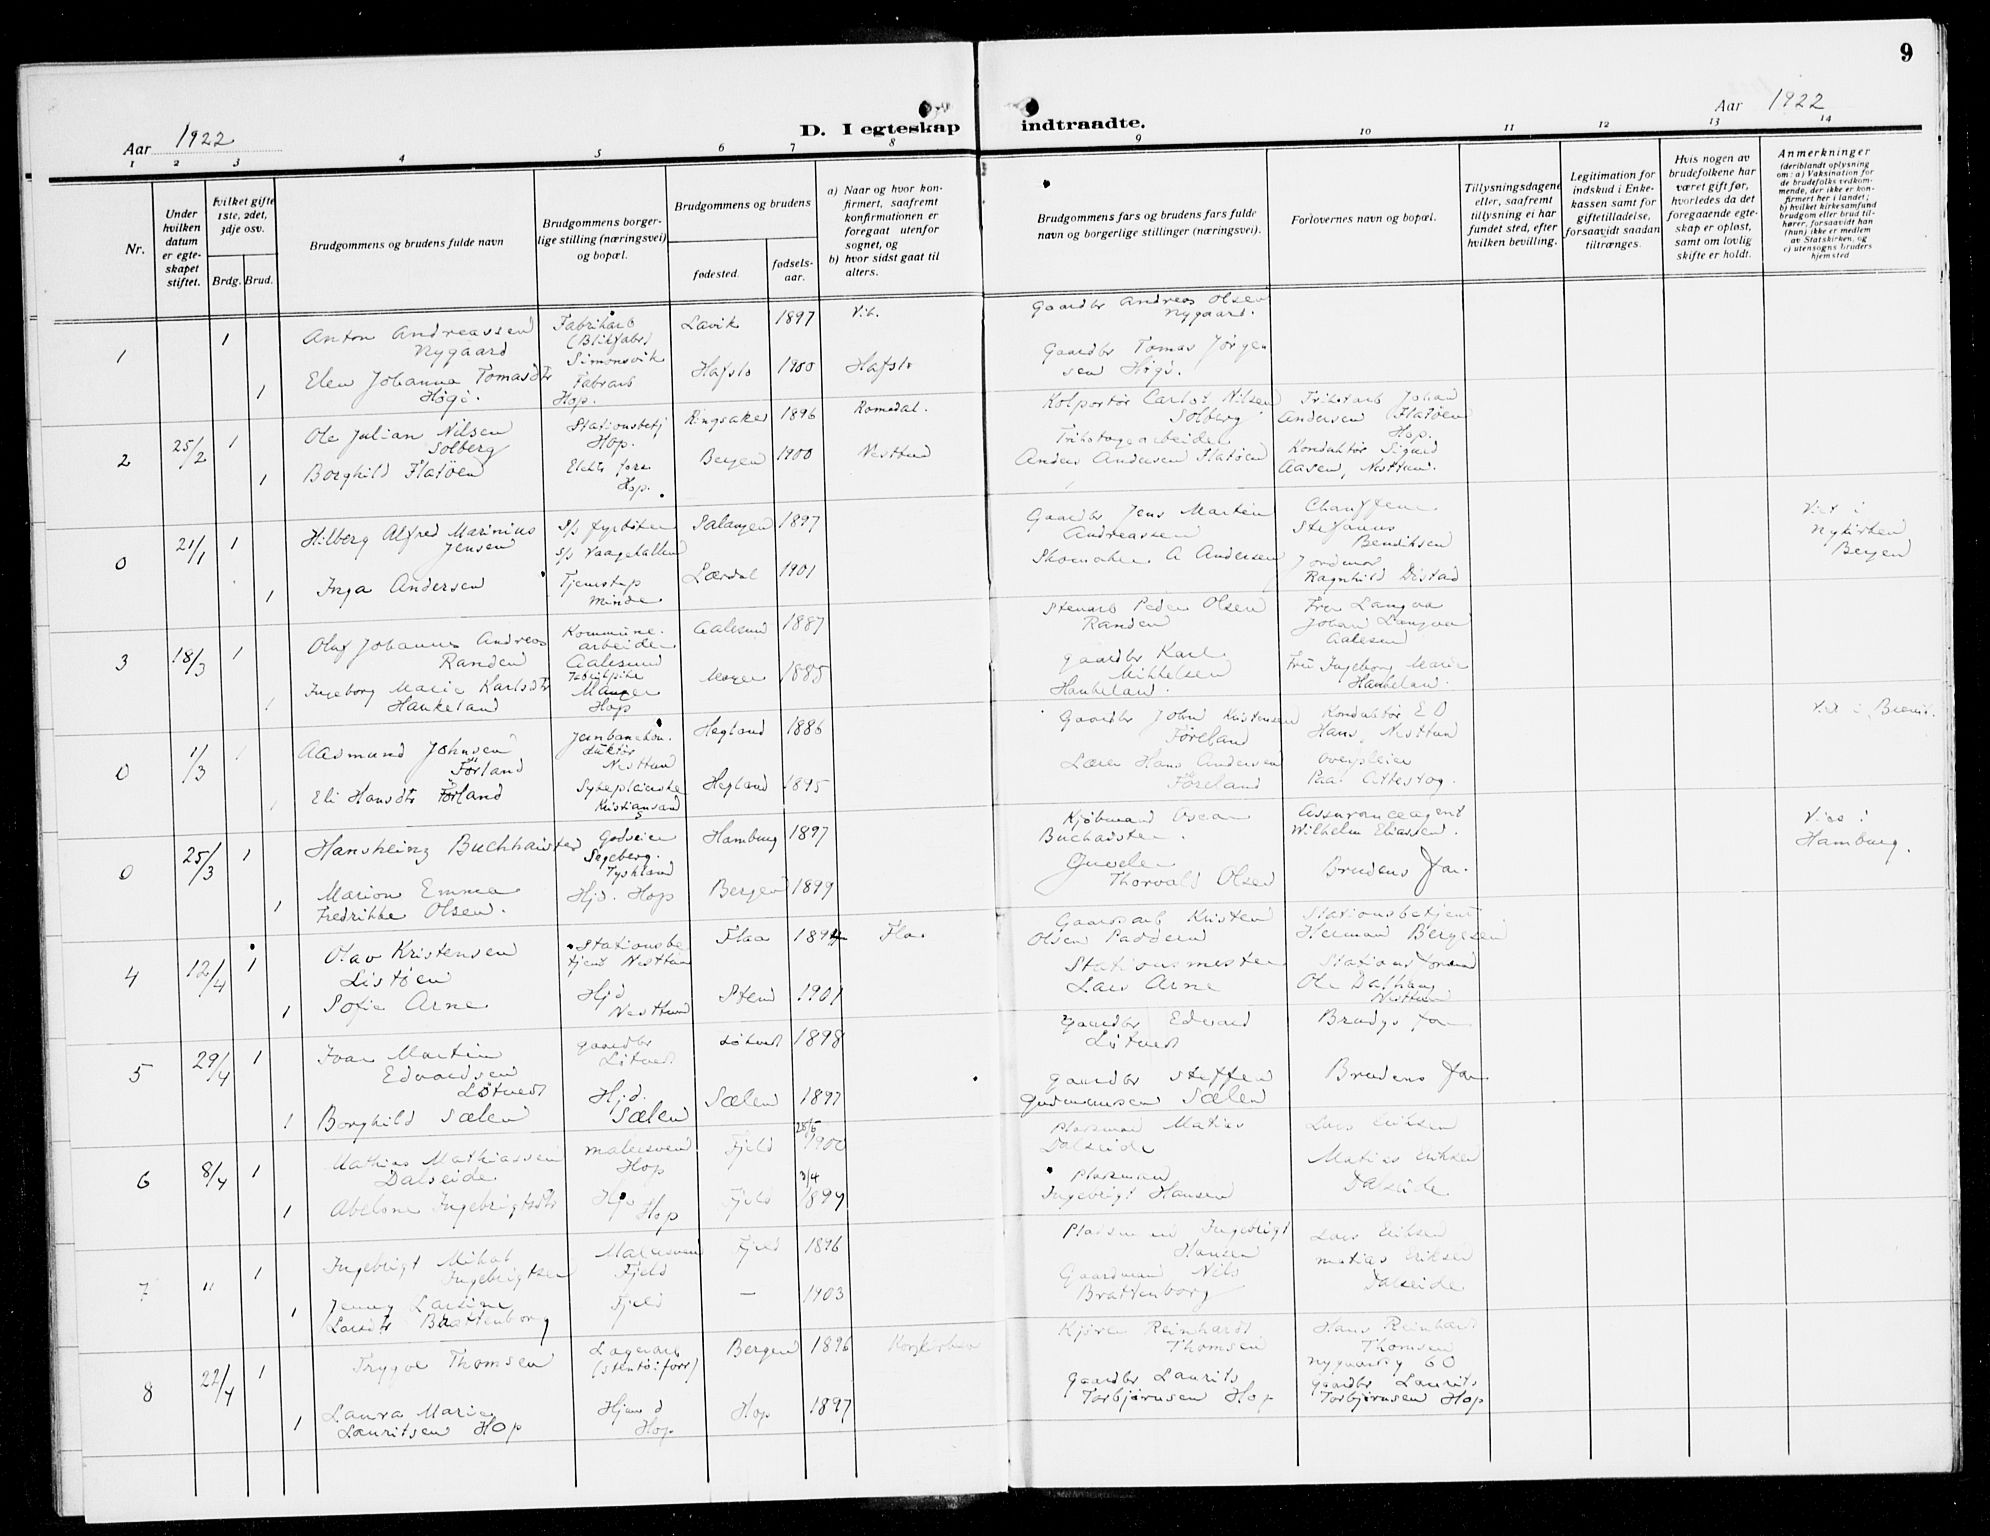 9
Aar 1922
D. I egteskap indtraadte.
Aar 1922
1 2 3 4 5 6 7 8 9 10 11 12 13 14
Nr.
Under hvilken datum er egteskapet stiftet.
Hvilket gifte 1ste, 2det, 3dje osv.
Brdg. Brud.
Brudgommens og brudens fulde navn
Brudgommens borgerlige stilling (næringsvei) og bopæl.
Brudgommens og brudens
fødested.
fødselsaar.
a) Naar og hvor konfirmert, saafremt konfirmationen er foregaat utenfor sognet, og
b) hvor sidst gaat til alters.
Brudgommens fars og brudens fars fulde navn og borgerlige stillinger (næringsvei).
Forlovernes navn og bopæl.
Tillysningsdagene eller, saafremt tillysning ei har fundet sted, efter hvilken bevilling.
Legitimation for indskud i Enkekassen samt for giftetilladelse, forsaavidt saadan tiltrænges.
Hvis nogen av brudefolkene har været gift før, hvorledes da det foregaaende egteskap er opløst, samt om lovlig skifte er holdt.
Anmerkninger
(deriblandt oplysning om: a) Vaksination for de brudefolks vedkommende, der ikke er konfirmert her i landet; b) hvilket kirkesamfund brudgom eller brud tilhører, forsaavidt han (hun) ikke er medlem av Statskirken, og c) utensogns bruders hjemsted
1 1 Anton Andreassen Nygaard Fabrikarb (Blikfabr) Simonsvik Lavik 1897 Vik. Gaardbr Andreas Olsen Nygaard.
1 Elen Johanna Tomasdtr Høgi. Fabrarb Hop. Hafslo 1900 Hafslo Gaardbr Tomas Jørgensen Høgi.
2 25/2 1 Ole Julian Nilsen Solberg Stationsbetj Hop. Ringsaker 1896 Romedal. Kolportør Carlot Nilsen Solberg Trikotarb Johan Andersen Flatøen Hop.
1 Borghild Flatøen Hop. Bergen 1900 Nesttun Trikotagearbeider Anders Andersen Flatøen Konduktør Sigurd Aasen, Nesttun.
0 21/1 1 Hilberg Alfred Marinius Jensen S/s fyrbøter S/s Vaagekallen Salangen 1897 Gaardbr Jens Martin Andreassen Chauffeur Stefanus Bendiksen Viet i Nykirken Bergen
1 Inga Andersen Tjenestep Minde Lærdal 1901 Skomaker A Andersen Jordmor Ragnhild Distad
3 18/3 1 Olaf Johannes Andreas Randen Kommunearbeider Aalesund Aalesund 1887 Stenarb Peder Olsen Randen Fru Langva Johan Langva Aalesen
1 Ingeborg Marie Karlsdtr Haukeland Fabrikpike Manger Hop Manger 1885 Gaardbr Karl Mikkelsen Haukeland. Fru Ingeborg Marie Haukeland.
0 1/3 1 Aasmund Johnsen Førland Jernbanekonduktør Nesttun Hegland 1886 Gaardbr John Kristensen Føreland Konduktør E D Hans, Nesttun Viet i
1 Eli Hansdtr Førland Sykepleierske Kristiansand S Hegland 1895 Lærer Hans Andersen Føreland
0 25/3 1 Hansheinz Buchhaister Godseier Segeberg. Tyskland Hamburg 1897 Kjøbmand Oscar Buchaister. Assuranceagent Wilhelm Eliassen. Vies i Hamburg.
1 Marion Emma Fredrikke Olsen. Hjd. Hop Bergen 1899 Thorvald Olsen Brudens far.
4 12/4 1 Olav Kristensen Listøen Stationsbetjent Nesttun Flaa 1894 Flaa Gaardsarb Kristen Olsen Stationsbetjent Herman Bergesen
1 Sofie Arne Hjd Nesttun Stend 1901 Stationsmester Lars Arne Ole Nesttun
5 29/4 1 Ivar Martin Edvardsen Løtvedt gaardbr Løtvedt Løtvedt 1898 Gaardbr Edvard Løtvedt Brudgs far
1 Borghild Sælen Hjd. Sælen Sælen 1897 Gaardbr Steffen Gudmunsen Sælen Brudens far
6 8/4 1 Mathias Mathiassen Dalseide malersvend Hop Fjeld 28/5 1900 Pladsmand Matias Dalseide Lars Eriksen
1 Abelone Ingebrigtsdtr Hjd Hop Fjeld 3/4 1899 Pladsmand Ingebrigt Hansen Matias Eriksen Dalseide
7 " 1 Ingebrigt Mikal Ingebrigtsen Malersvend Fjeld Fjeld 1896 Pladsmand Ingebrigt Hansen Lars Eriksen
1 Jenny Larsine Larsdtr Brattenborg Fjeld — 1903 Gaardmand Nils Brattenborg Matias Eriksen Dalseide
8 22/4 1 Trygve Thomsen Lagerarb (stentøiforr) Bergen 1896 Korskirken Kjører Reinhardt Thomsen Hans Reinhardt Thomsen Nygaardsg 60
1 Laura Marie Lauritsen Hop Hjem d Hop Hop 1897 gaardbr Laurits Torbjørnsen Hop gaardbr Laurits Torbjørnsen Hop